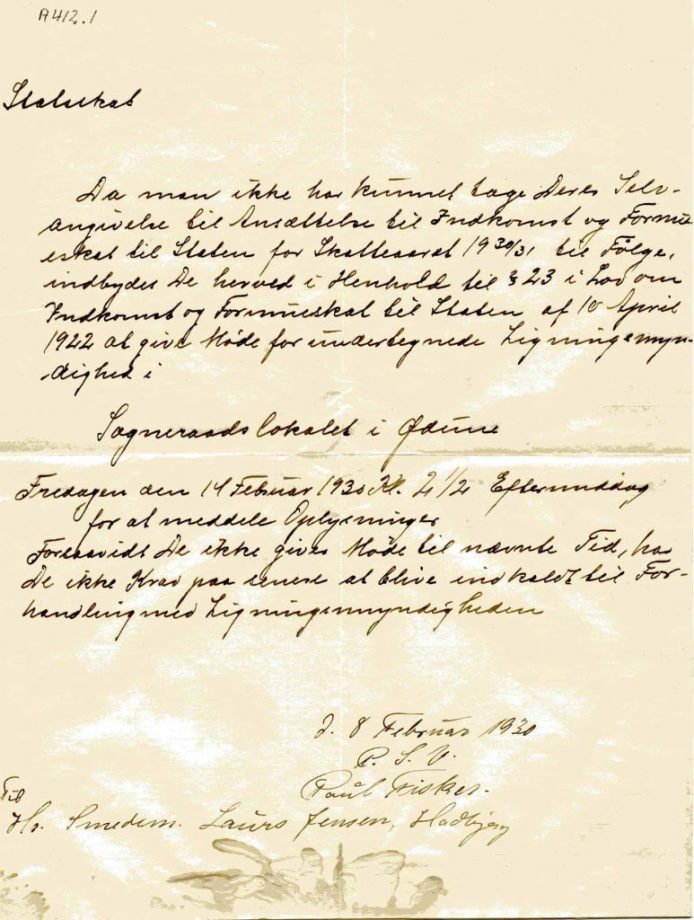 A412.1
Statsskat
Da man ikke har kunnet tage Deres Selv-
angivelse til Ansættelse til Indkomst og Formue
skat til Staten for Skatteaaret 1930/31 til Følge,
indbydes De herved i Henhold til § 23 i Lov om
Indkomst og Formueskat til Staten af 10 April
1922 at give Møde for undertegnede Ligningsmyn-
dighed i
Sogneraadslokalet i Ødum
Fredagen den 14 Februar 1930 Kl. 2 1/2 Eftermiddag
for at meddele Oplysninger
Forsaavidt De ikke giver Møde til nævnte Tid, har
De ikke Krav paa senere at blive indkaldt til For-
handling med Ligningsmyndigheden
d. 8 Februar 1930
P. S. V.
Paul Fisker.
Til
Hr. Smedem. Laurs Jensen, Hadbjerg